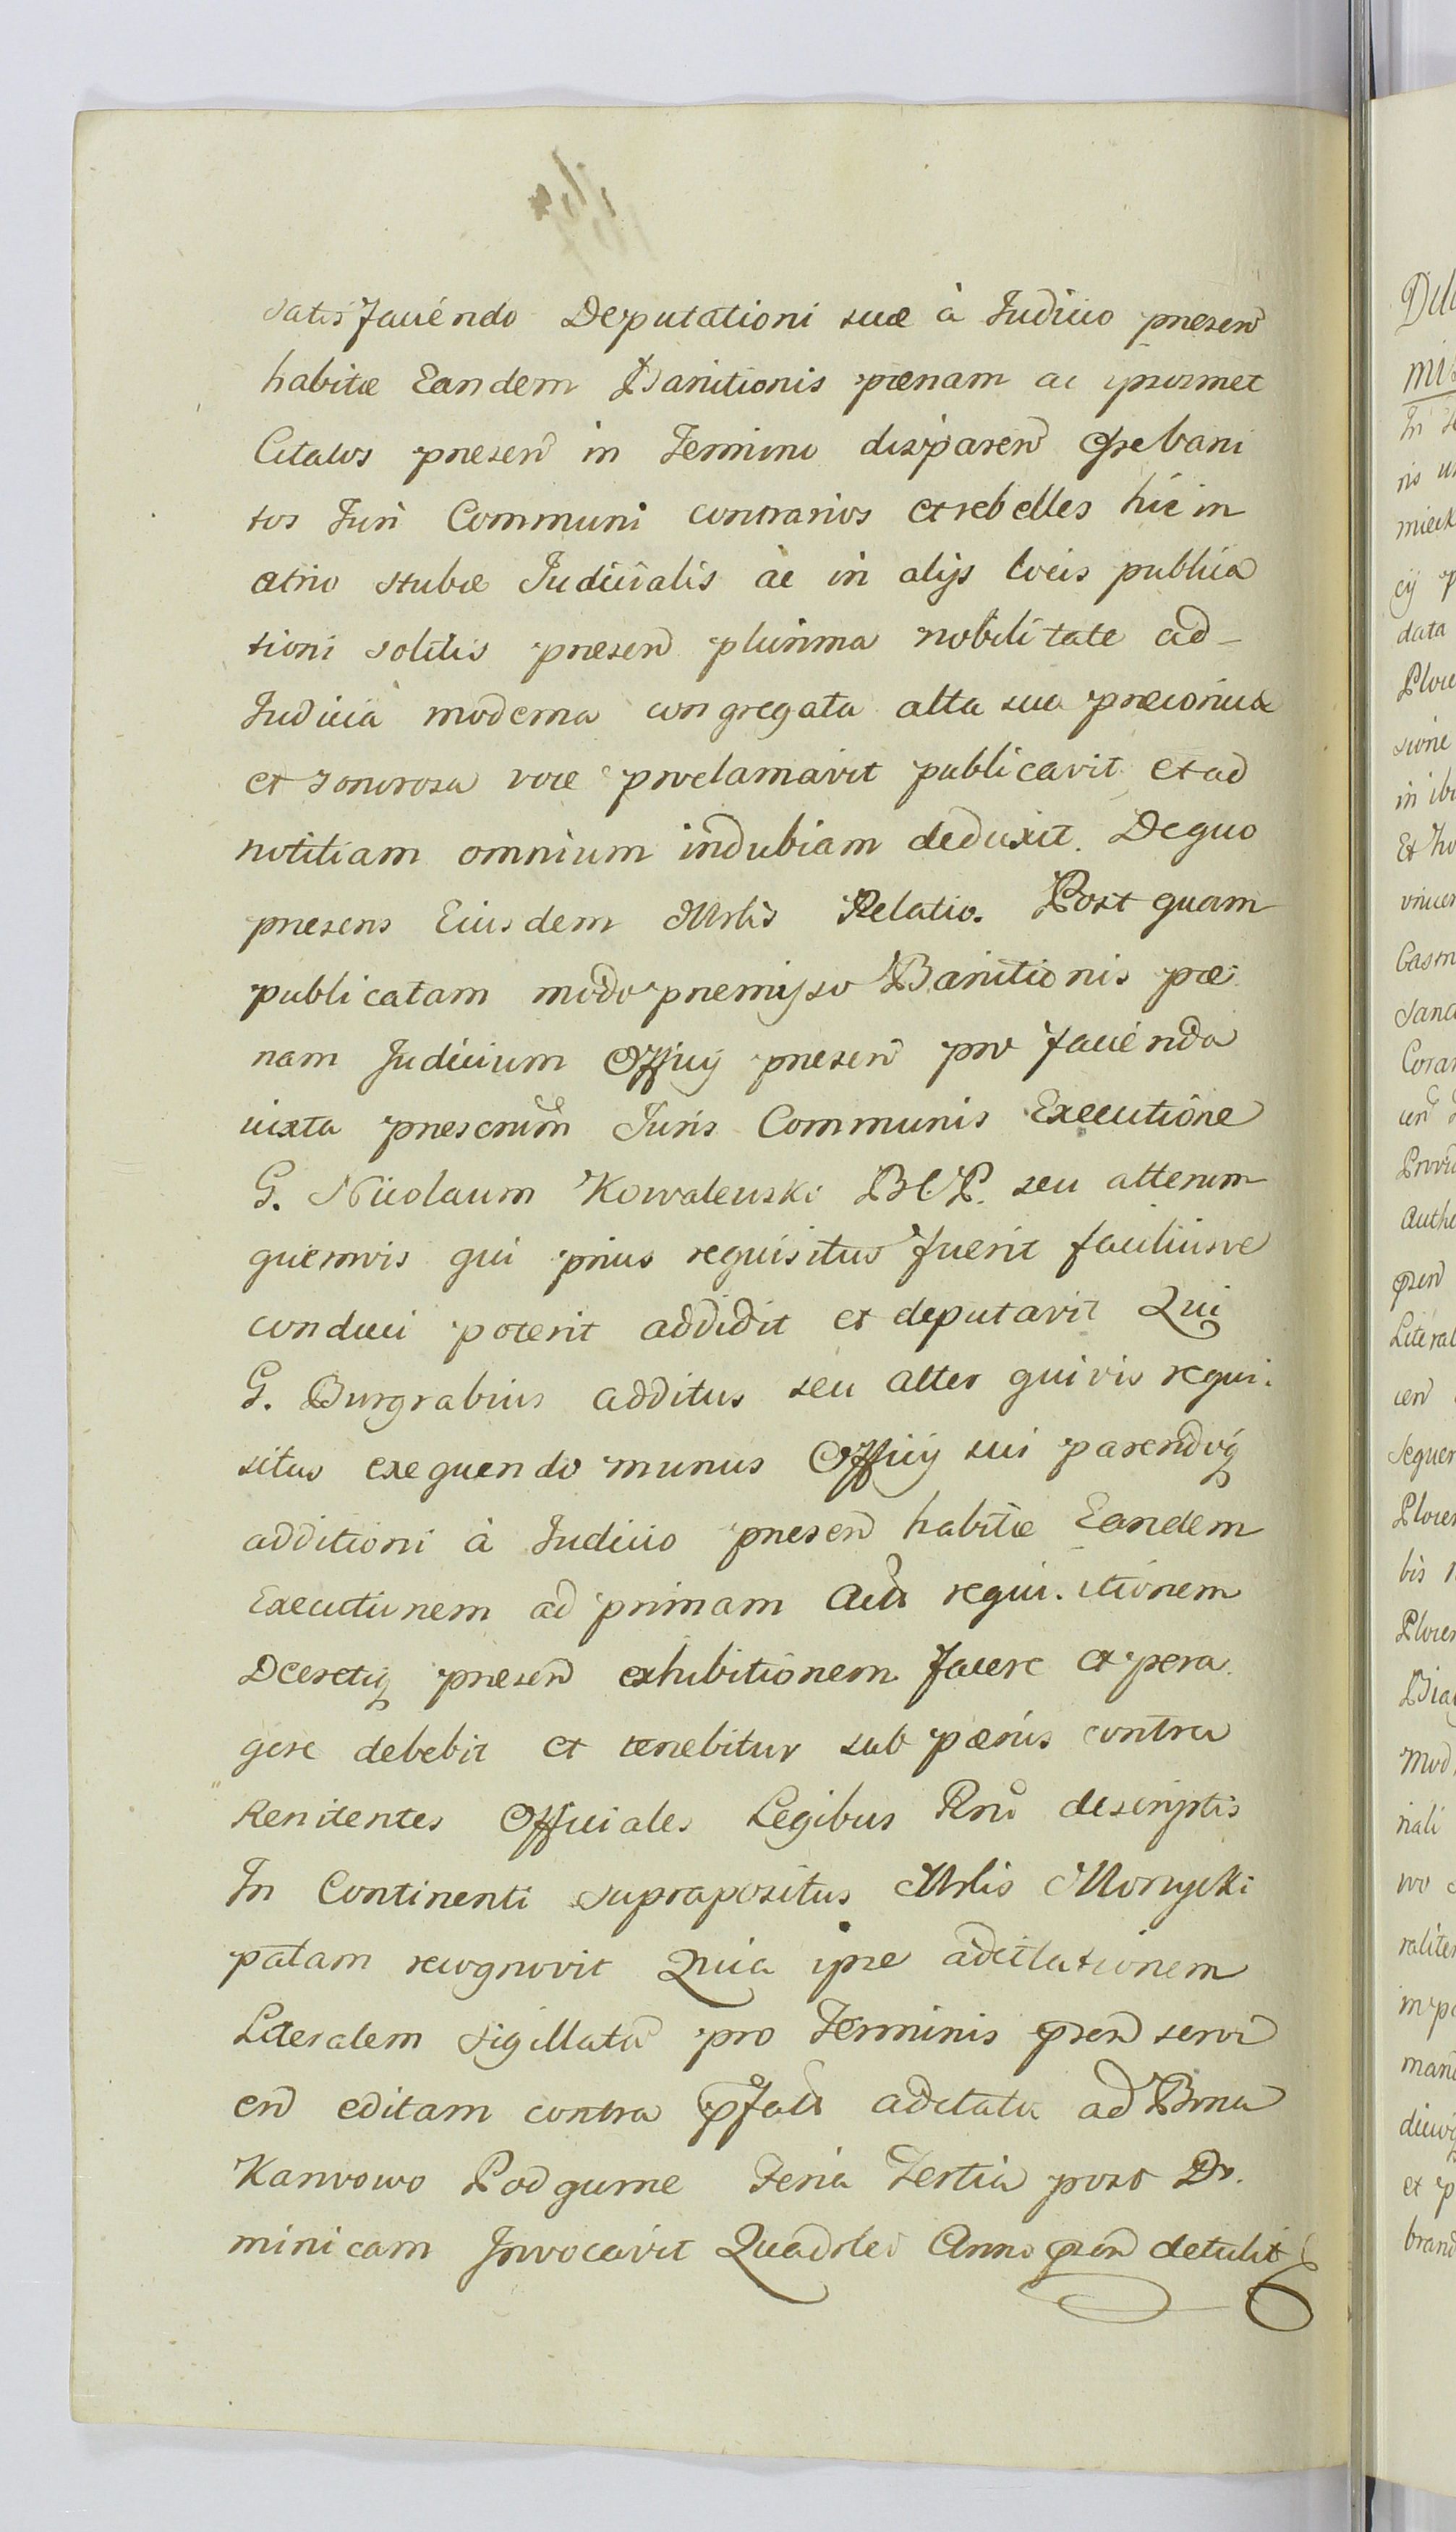 satisfaciendo Deputationi suæ à Judicio præsen
habitæ Eandem Banitionis pœnam ac ipsosmet
Citatos præsen in Termino disparen
tos Juri Communi contrarios et rebelles hic in
atrio stubæ Judicialis ac in alijs locis publica
tioni solitis præsen plurima nobilitate ad-
Judicia moderna congregata alta sua præconica
et sonorosa voce proclamavit publicavit et ad
notitiam omnium indubiam deduxit. De quo
præsens Eiusdem Mrlis Relatio. Post quam
publicatam modo præmisso Banitionis pœ
nam Judicium Officij præsen pro facienda
iuxta præscrium Juris Communis Executione
G. Nicolaum Kowalewski BCP. seu alterum
quemvis qui prius requisitus fuerit faciliusve
conduci poterit addidit et deputavit Qui
G. Burgrabius additus seu alter quivis requi.
situs exequendo munus Officij sui parendoq
additioni à Judicio præsen habitæ Eandem
Executionem ad primam requi. itionem
Decretiq præsen exhibitionem facere et pera
gere debebit et tenebitur sub pœnis contra
Renitentes Officiales Legibus Rni descriptis
In Continenti suprapositus Mrlis Morycki
palam recognovit Quia ipse adcitationem
Literalem sigillata pro Terminis præn servi
en editam contra pfato adcitatu ad Bona
Kanvowo Podgurne Feria Tertia post Do.
minicam Invocavit Quadrlei Anno præn detulit
Dile
mis
In
ris
mieck
cij p
data
Ploce
sione
in ibi
Et ho
vincen
Casm
sanc
Coran
cen
Provi
Authe
præn
Literal
cen
sequen
Plocen
bis
Plocen
Bia
mod
riali
wo
raliter
in po
man
diciu
et p
brand